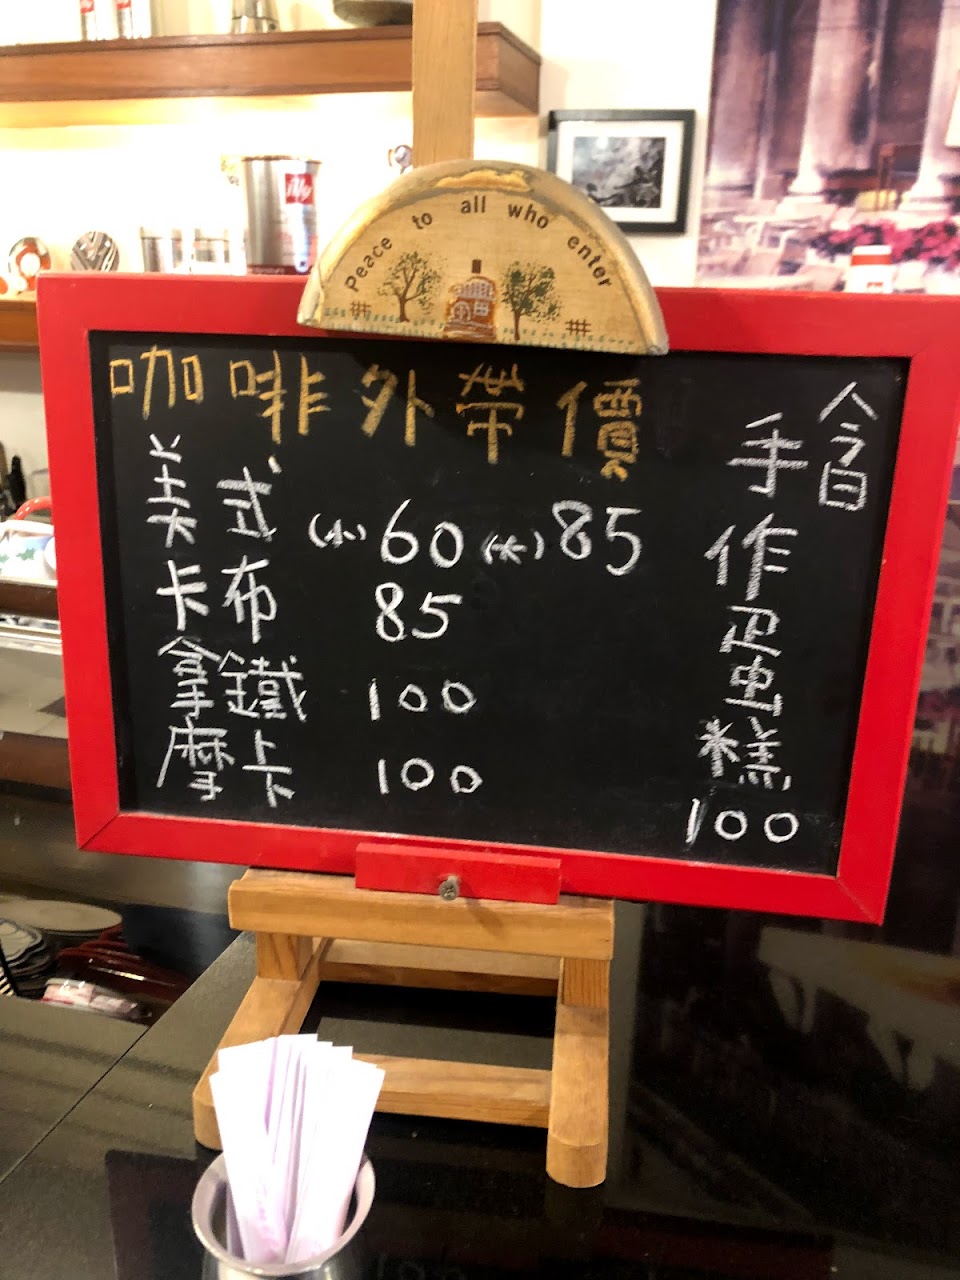 illy
Peace to all who enter
咖啡外帶價
美式 (小) 60 (大) 85
卡布 85
拿鐵 100
摩卡 100
手作蛋糕
100